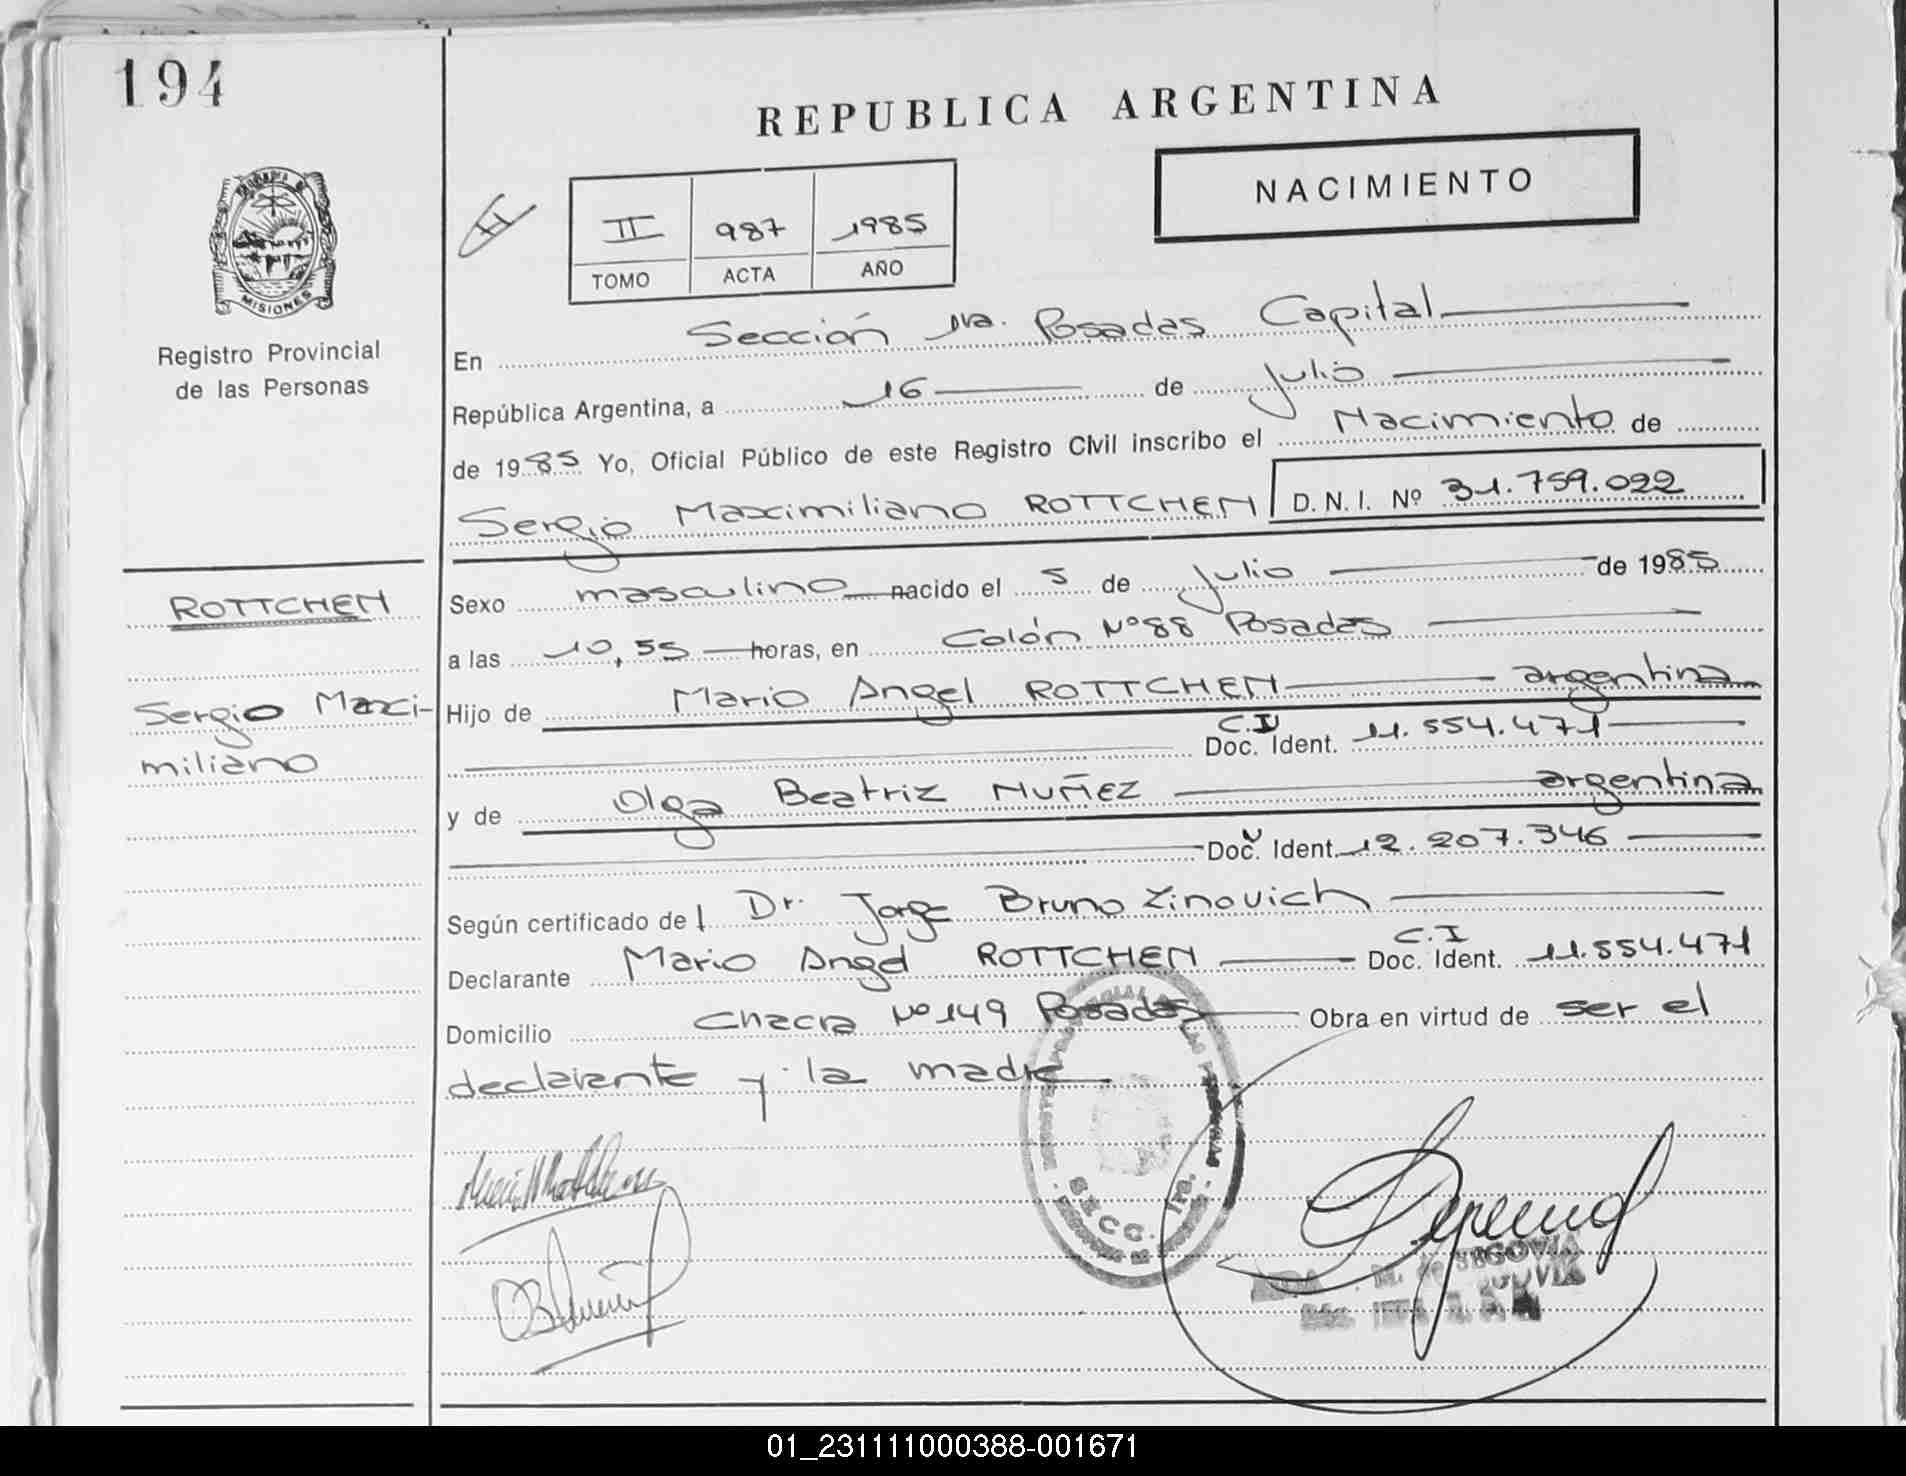 194
REPUBLICA ARGENTINA
NACIMIENTO
PROVINCIA DE
MISIONES
Registro Provincial
de las Personas
II 987 1985
TOMO ACTA AÑO
En Sección 1ra. Posadas Capital
República Argentina, a 16 de Julio
de 1985 Yo, Oficial Público de este Registro Civil inscribo el Nacimiento de
Sergio Maximiliano ROTTCHEN D.N.I. Nº 31.759.022
ROTTCHEN
Sergio Maxi-
miliano
Sexo masculino nacido el 5 de Julio de 1985
a las 10,55 horas, en Colón Nº 88 Posadas
Hijo de Mario Angel ROTTCHEN argentina
C.I
Doc. Ident. 11.554.471
y de Olga Beatriz NUÑEZ argentina
Doc. Ident. 12.207.346
Según certificado del Dr. Jorge Bruno Zinovich
Declarante Mario Angel ROTTCHEN C.I Doc. Ident. 11.554.471
Domicilio Chacra Nº 149 Posadas Obra en virtud de ser el
declarante y la madre
SECC. 1ra.
M. de SEGOVIA
01_231111000388-001671